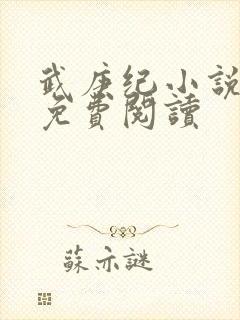 武庚纪小説
免費閱讀
蘇亦謎